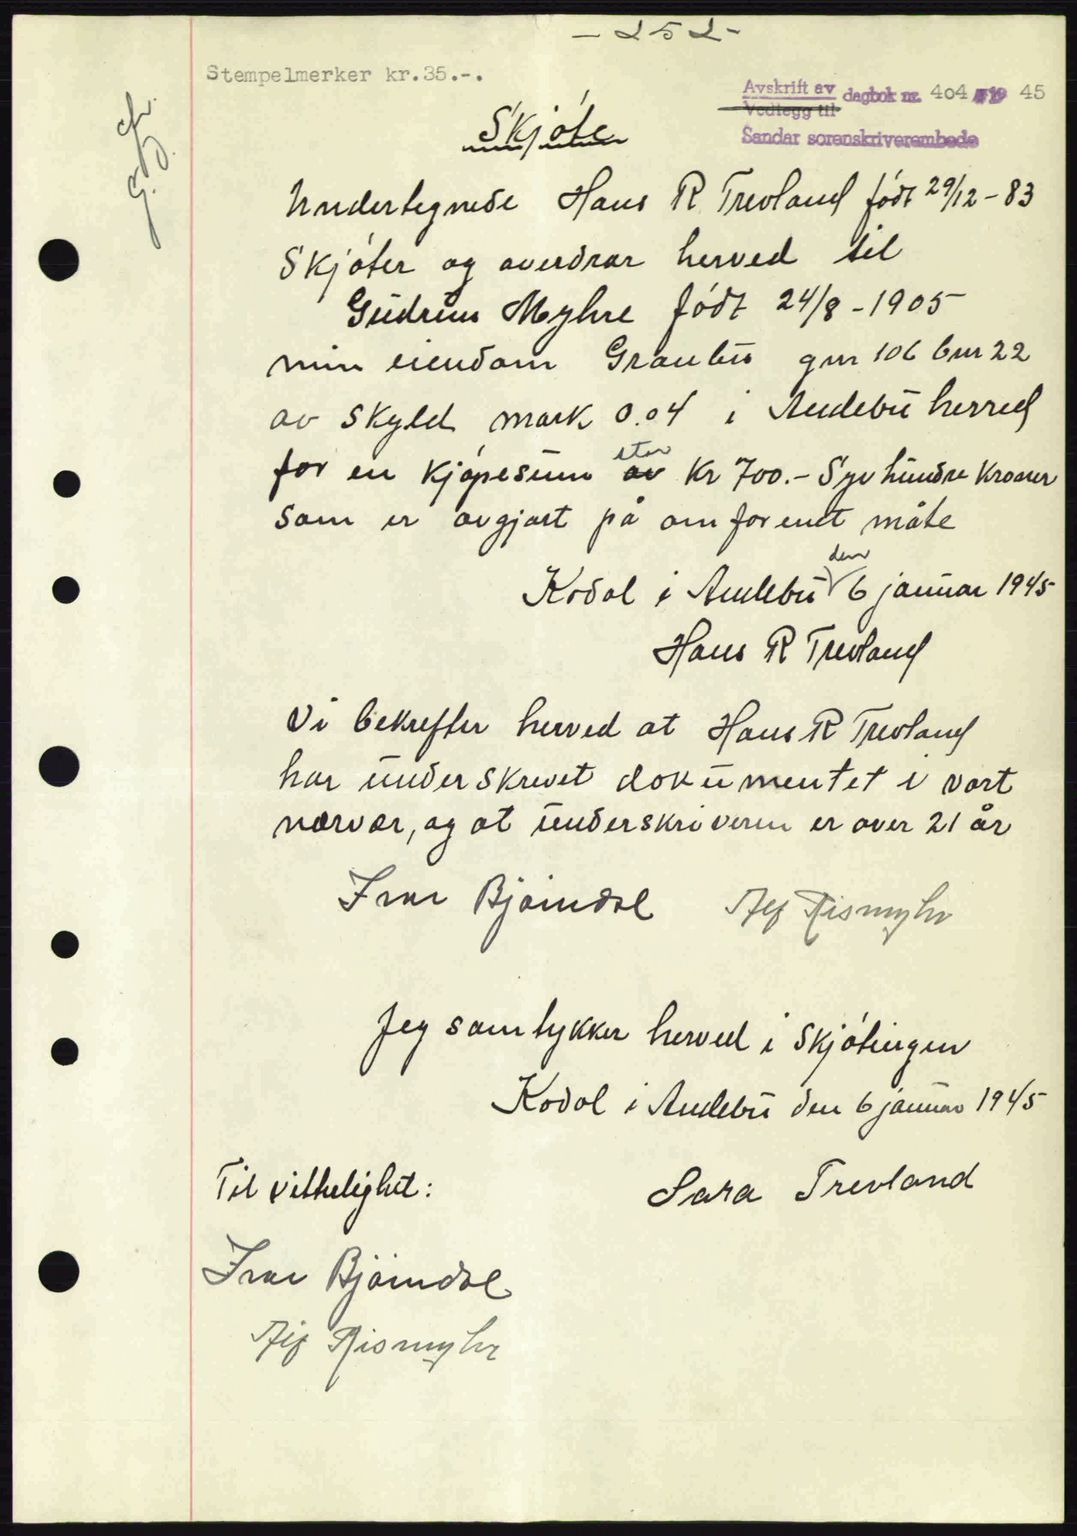 - 252 -
Stempelmerker kr.35.-.
Avskrift av dagbok nr. 404 19 45
Vedlegg til
Sandar sorenskriverembede
Skjøte
Undertegnede Hans R Trevland født 29/12 - 83
Skjøter og averdrar herved til
Gudrun Myhre født 24/8 - 1905
min eiendom Granbu gnr 106 bnr 22
av skyld mark 0.04 i Andebu herred
for en kjøpesum av stor Kr 700.- Syv hundre kroner
som er avgjort på omforenet måte
Kodal i Andebu den 6 januar 1945
Hans R Trevland
Vi bekrefter herved at Hans R Trevland
har underskrevet dokumentet i vort
nærvær, og at underskriveren er over 21 år
Ivar Bjørndal Alf Rismyhr
Jeg samtykker herved i skjøtingen
Kodal i Andebu den 6 januar 1945
Til vitterlighet:
Sara Trevland
Ivar Bjørndal
Alf Rismyhr